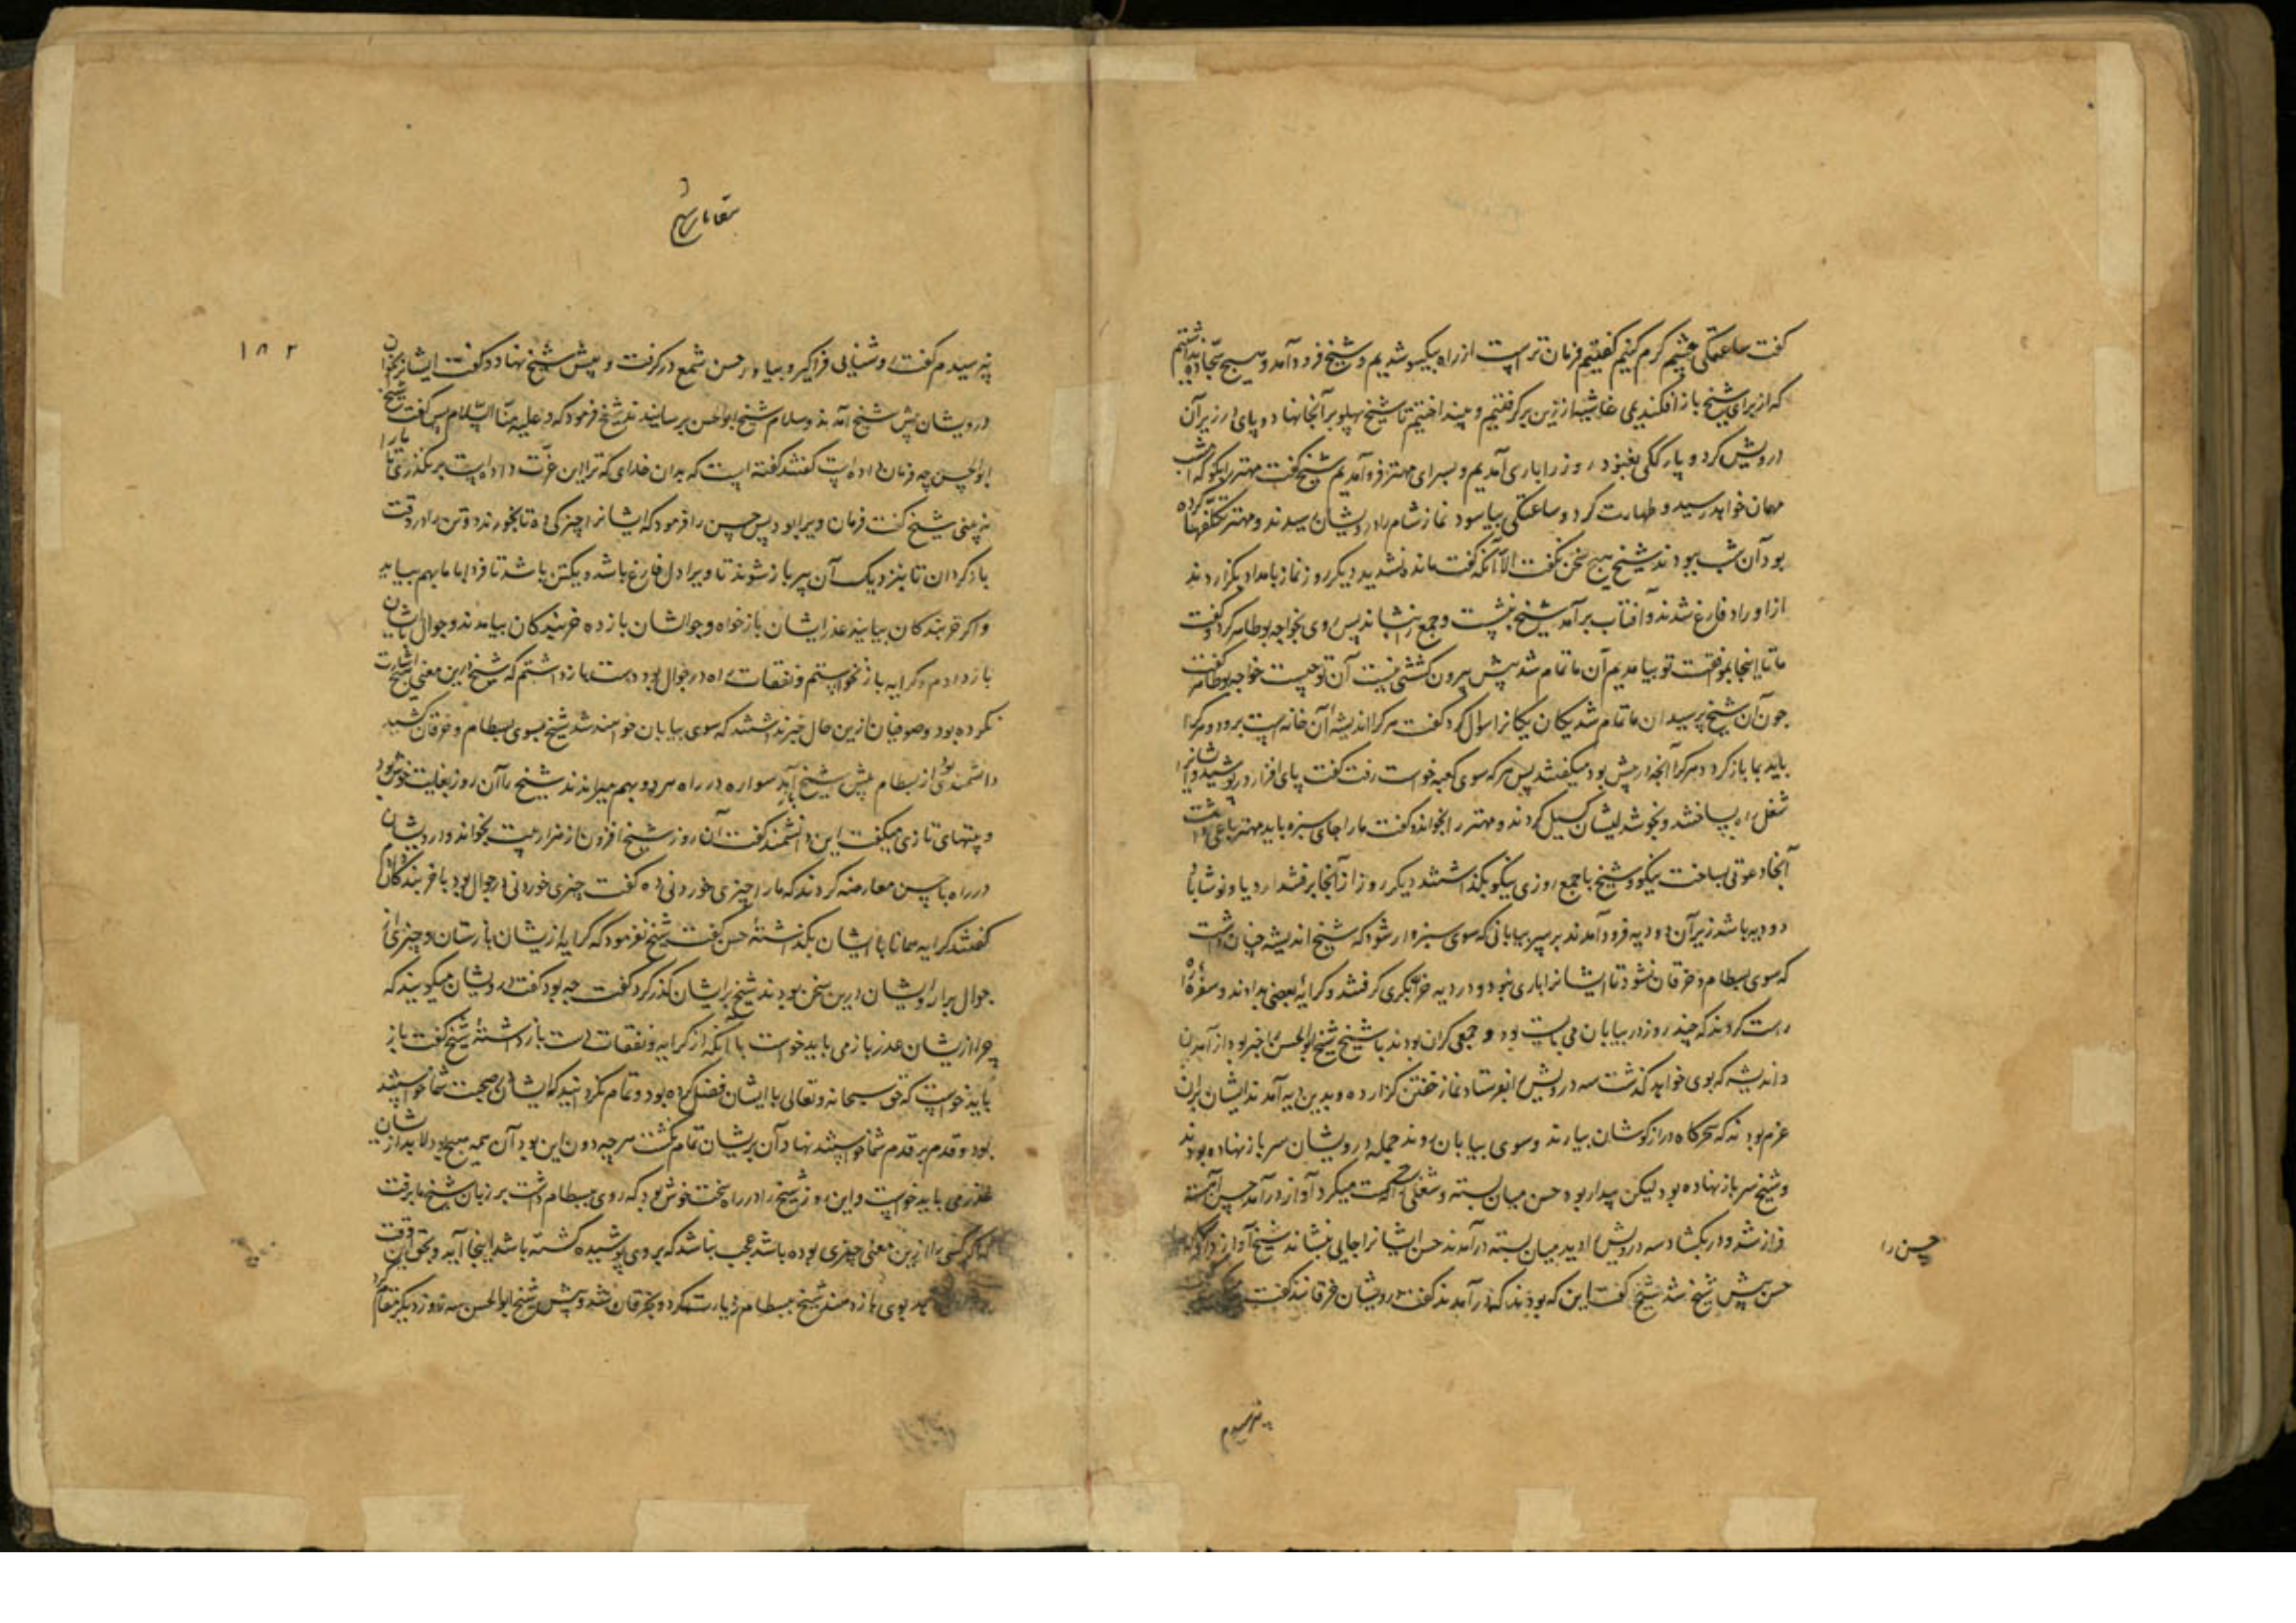 گفت ساعتکی چشم گرم کنیم گفتیم فرمان تراست از راه بیکسو شدیم و شیخ فرود آمد و هیچ سجاده نداشتیم
که از برای شیخ باز افکندیمی غاشیه از زین برگرفتیم و بینداختیم تا شیخ پهلو بر آنجا نهاد و پای در زیر آن
درویش کرد و پارگکی بغنود روز را باری آمدیم و بسرای مهتر فرو آمدیم شیخ گفت مهتر را بگو که امشب
مهمان خواهد رسید و طهارت کرد و ساعتکی بیاسود نماز شام را درویشان رسیدند و مهتر تکلفها کرده
بود آن شب ببودند شیخ هیچ سخن نگفت الا آنکه گفت مانده شدید دیگر روز نماز بامداد بگزاردند
از اوراد فارغ شدند و آفتاب برآمد شیخ بنشست و جمع بنشاند پس روی بخواجه بوطاهر کرد و گفت
ما تا اینجا بموافقت تو بیامدیم آن ما تمام شد پیش بیرون کششی نیست آن تو چیست خواجه بوطاهر گفت
چون آن شیخ برسید آن ما تمام شد یکان یکانرا سوال کرد گفت هرکرا اندیشه آن خانه است برود و هرکرا
باید بما بازگردد هرکرا آنچه در پیش بود میگفتند پس هرکه سوی کعبه خواست رفت گفت پای افزار درپوشید و ایشانرا
شغل راه بساختند و بخوشدلیشان گسیل کردند و مهتر را بخوانده گفت ما را جای سبزه باید مهتر باغی داشت
آنجا دعوتی بساخت نیکو و شیخ با جمع روزی نیکو بگذاشتند دیگر روز از آنجا برفتند اردیان و نوشاباد
دو دیه باشد زیر آن دو دیه فرود آمدند بر سر بیابانی که سوی سبزوار شود که شیخ اندیشه چنان داشت
که سوی بسطام و خرقان نشود تا ایشانرا باری نبود و در دیه خر بکری گرفتند و کرایه بعضی بدادند و سفره را
راست کردند که چند روز در بیابان می بایست بود و جمعی گران بودند با شیخ شیخ ابوالحسن را خبر بود از آمدن
و اندیشه که بوی خواهد گذشت سه درویش را بفرستاد نماز خفتن گزارده و بدین دیه آمدند ایشان بران
عزم بودند که سحرگاه درازگوشان بیارند و سوی بیابان روند جمله درویشان سر باز نهاده بودند
و شیخ سر باز نهاده بود لیکن بیدار بود حسن میان بسته و شغلی راست میکرد آواز در آمد حسن آهسته
فراز شد و در بگشاد سه درویش را دید میان بسته درآمدند حسن ایشانرا جایی بنشاند شیخ آواز داد که
حسن را
حسن پیش شیخ شد شیخ گفت این که بودند که درآمدند گفت درویشان خرقانند گفت
پرسیدم
مقامات شیخ
۱۸۲
پرسیدم گفت روشنایی فراگیر و بیاور حسن شمع درگرفت و پیش شیخ نهاد و گفت ایشانرا بخوان
درویشان پیش شیخ آمدند و سلام شیخ ابوالحسن برسانیدند شیخ فرمود که و علیه منا السلام پس گفت شیخ
ابوالحسن چه فرمان داده است گفتند گفته است که بدان خدای که ترا این عزت داده است برنگذری تا ما را
نه بینی شیخ گفت فرمان ویرا بود پس حسن را فرمود که ایشانرا چیزکی ده تا بخورند و دو تن را در وقت
بازگردان تا بنزدیک آن پیر باز شوند تا ویرا دل فارغ باشد و یکتن باشد تا فردا ما بهم بیاید
و اگر خربندگان بیایند عذر ایشان بازخواه و جوالشان باز ده خربندگان بیامدند و جوال ایشان
باز دادم و کرایه باز نخواستم و نفقات راه در جوال بود دست باز داشتم که شیخ درین معنی هیچ اشارت
نکرده بود و صوفیان ازین حال خبر نداشتند که سوی بیابان خواهند شد شیخ بسوی بسطام و خرقان کشید
دانشمندی بود از بسطام پیش شیخ آمد سواره در راه هر دو بهم میراندند شیخ را آن روز بغایت خوش بود
و بیتهای تازی میگفت این دانشمند گفت آن روز شیخ افزون از هزار بیت بخواند و درویشان
در راه با حسن معارضه کردند که ما را چیزی خوردنی ده گفت چیزی خوردنی در جوال بود با خربندگان
گفتند کرایه همانا با ایشان بگذاشته حسن گفت شیخ نفرمود که کرایه از ایشان بازستان و چیزی از
جوال بردار و ایشان درین سخن بودند شیخ بر ایشان گذر کرد گفت چه بود گفت درویشان میگویند که
چرا از ایشان عذر باز می باید خواست با آنکه از کرایه و نفقات دست باز داشته شیخ گفت باز
باید خواست که حق سبحانه و تعالی با ایشان فضل کرده بود و تمام نکردانید که ایشان صحبت شما خواستند
بود و قدم بر قدم شما خواستند نهاد آن بریشان تمام نگشت هر چه دون این بود آن همه هیچ بود لابد از ایشان
عذر می باید خواست و این روز شیخ را در راه سخت خوش بود که روی ببسطام داشت بر زبان شیخ ما برفت
که اگر کسی را ازین معنی چیزی بوده باشد عجب نباشد که بر وی پوشیده گشته باشد اینجا آید و بحق این وقت
بوی باز دهند شیخ ببسطام زیارت کرد و بخرقان شد و پیش شیخ ابوالحسن سه روز دیگر مقام کرد